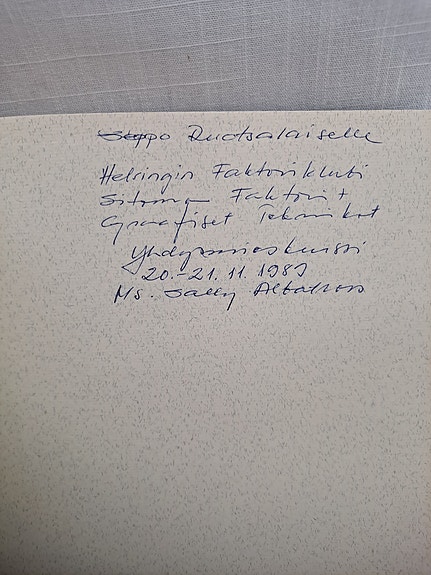 Seppo Ruotsalaiselle
Helsingin Faktoriklubi
Sitoma Faktorit
Graafiset Teknikot
Yhdysmieskurssi
20.-21.11.1989
Ms. Sally Albatross